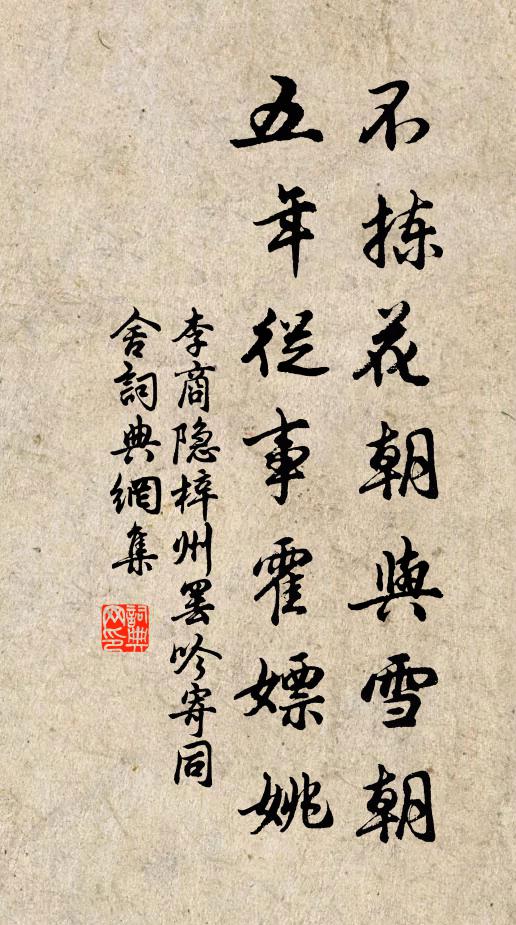 不拣花朝與雪朝
五年從事霍嫖姚
李商隐梓州罢吟寄同
舍詞典網集
詞典
网印